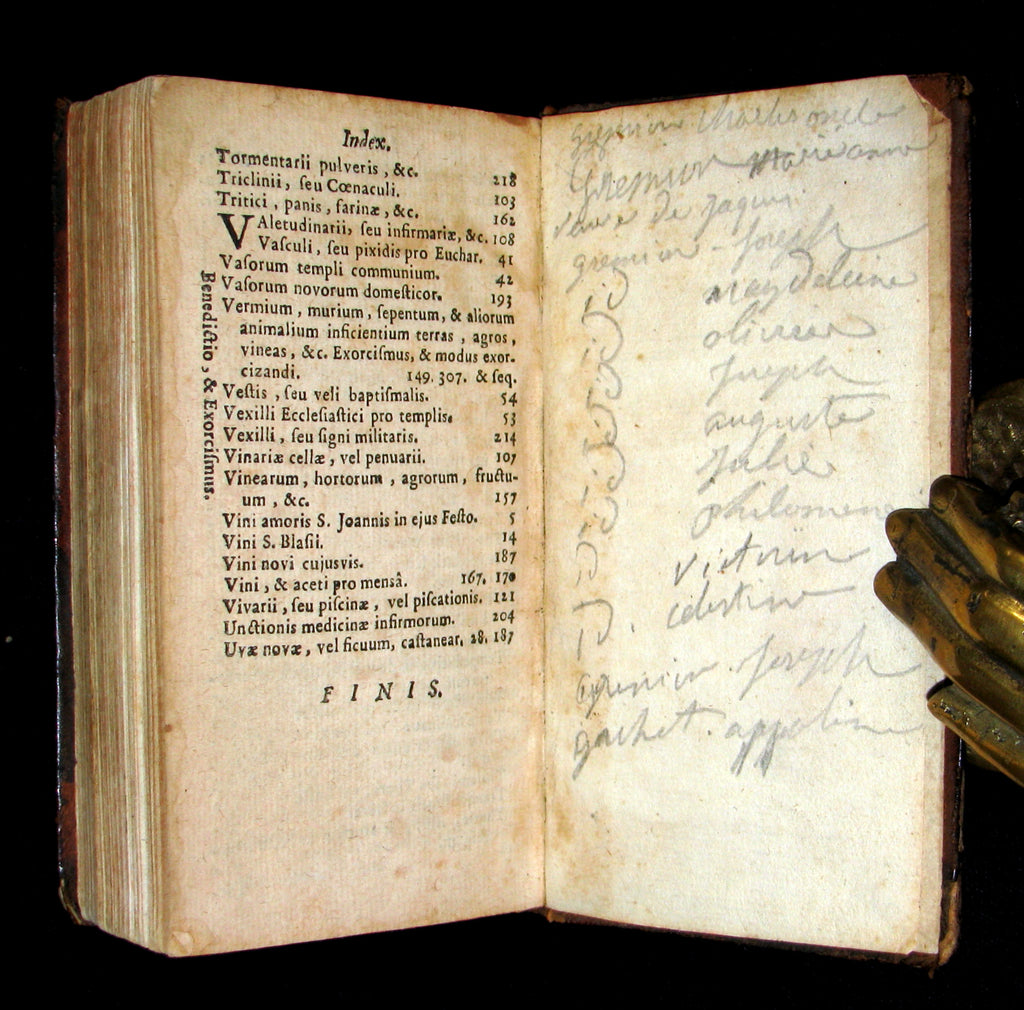 Index.
Tormentarii pulveris, &c. 218
Triclinii, ſeu Cœnaculi. 103
Tritici, panis, farinæ, &c. 162
VAletudinarii, ſeu infirmariæ, &c. 108
Vaſculi, ſeu pixidis pro Euchar. 41
Vaſorum templi communium. 42
Vaſorum novorum domeſticor. 193
Vermium, murium, ſepentum, & aliorum
animalium inficientium terras, agros,
vineas, &c. Exorciſmus, & modus exor-
cizandi. 149. 307. & ſeq.
Veſtis, ſeu veli baptiſmalis. 54
Vexilli Eccleſiaſtici pro templis. 53
Vexilli, ſeu ſigni militaris. 214
Vinariæ cellæ, vel penuarii. 107
Vinearum, hortorum, agrorum, fructu-
um, &c. 157
Vini amoris S. Joannis in ejus Feſto. 5
Vini S. Blaſii. 14
Vini novi cujusvis. 187
Vini, & aceti pro mensâ. 167. 170
Vivarii, ſeu piſcinæ, vel piſcationis. 121
Unctionis medicinæ infirmorum. 204
Uvæ novæ, vel ficuum, caſtanear. 28. 187
FINIS.
Benedictio, & Exorciſmus.
gremion
Gremion Marie anne
de Jaquin
gremion Joseph
magdeleine
olivier
Joseph
auguste
Julie
philomene
victorin
celestine
gremion Joseph
gachet. appoline